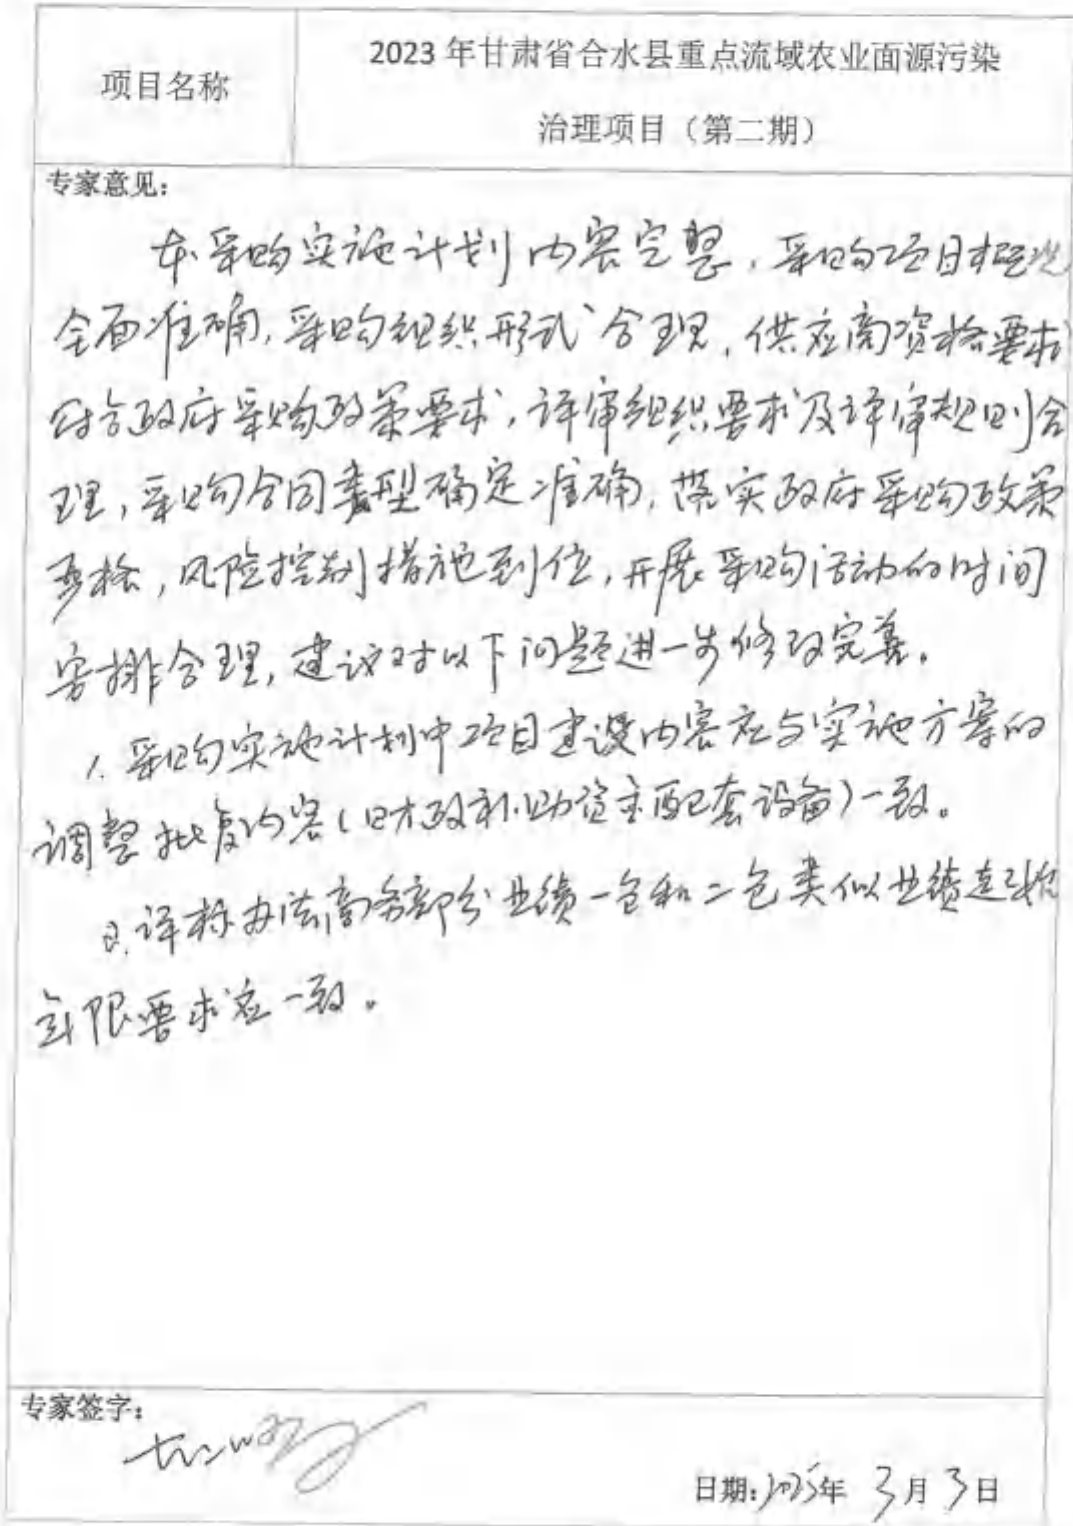 项目名称
2023年甘肃省合水县重点流域农业面源污染
治理项目（第二期）
专家意见：
本采购实施计划内容完整，采购项目概况
全面准确，采购组织形式合理，供应商资格要求
符合政府采购政策要求，评审组织要求及评审规则合
理，采购合同类型确定准确，落实政府采购政策
严格，风险控制措施到位，开展采购活动的时间
安排合理，建议对以下问题进一步修改完善。
1.采购实施计划中项目建设内容应与实施方案的
调整批复内容（财政补助资金配套设备）一致。
2.评标办法商务部分业绩一包和二包类似业绩起始
年限要求应一致。
专家签字：
日期：2025年3月3日